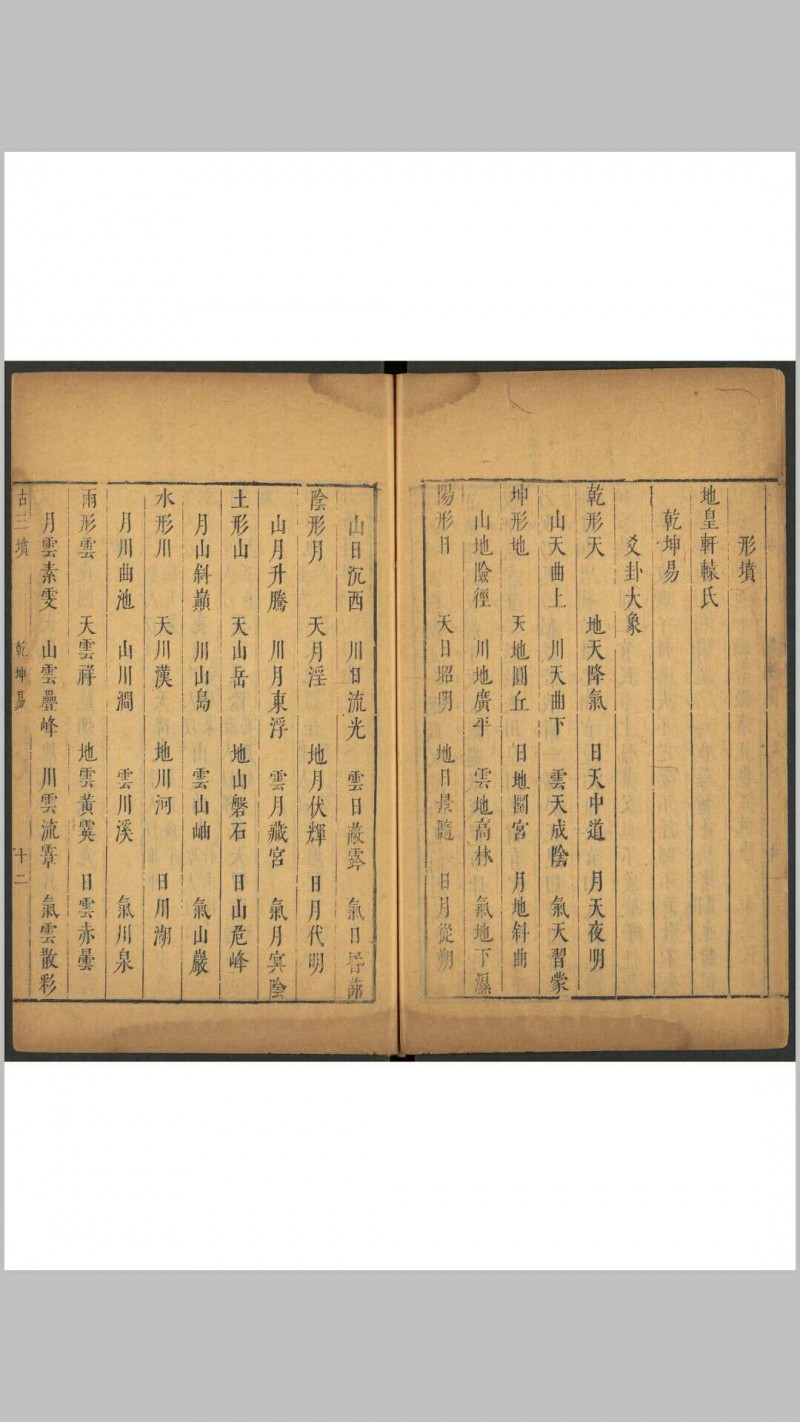 形墳
地皇軒轅氏
乾坤易
爻卦大象
乾形天 地天降氣 日天中道 月天夜明
山天曲上 川天曲下 雲天成陰 氣天習蒙
坤形地 天地圓丘 日地圜宮 月地斜曲
山地險徑 川地廣平 雲地高林 氣地下濕
陽形日 天日昭明 地日景隨 日月從朔
山日沉西 川日流光 雲日蔽霧 氣日昏蔀
陰形月 天月淫 地月伏輝 日月代明
山月升騰 川月東浮 雲月藏宮 氣月冥陰
土形山 天山岳 地山磐石 日山危峰
月山斜巔 川山島 雲山岫 氣山巖
水形川 天川漢 地川河 日川湖
月川曲池 山川澗 雲川溪 氣川泉
雨形雲 天雲祥 地雲黃霙 日雲赤曇
月雲素雯 山雲疊峰 川雲流霏 氣雲散彩
古三墳 乾坤易 十二